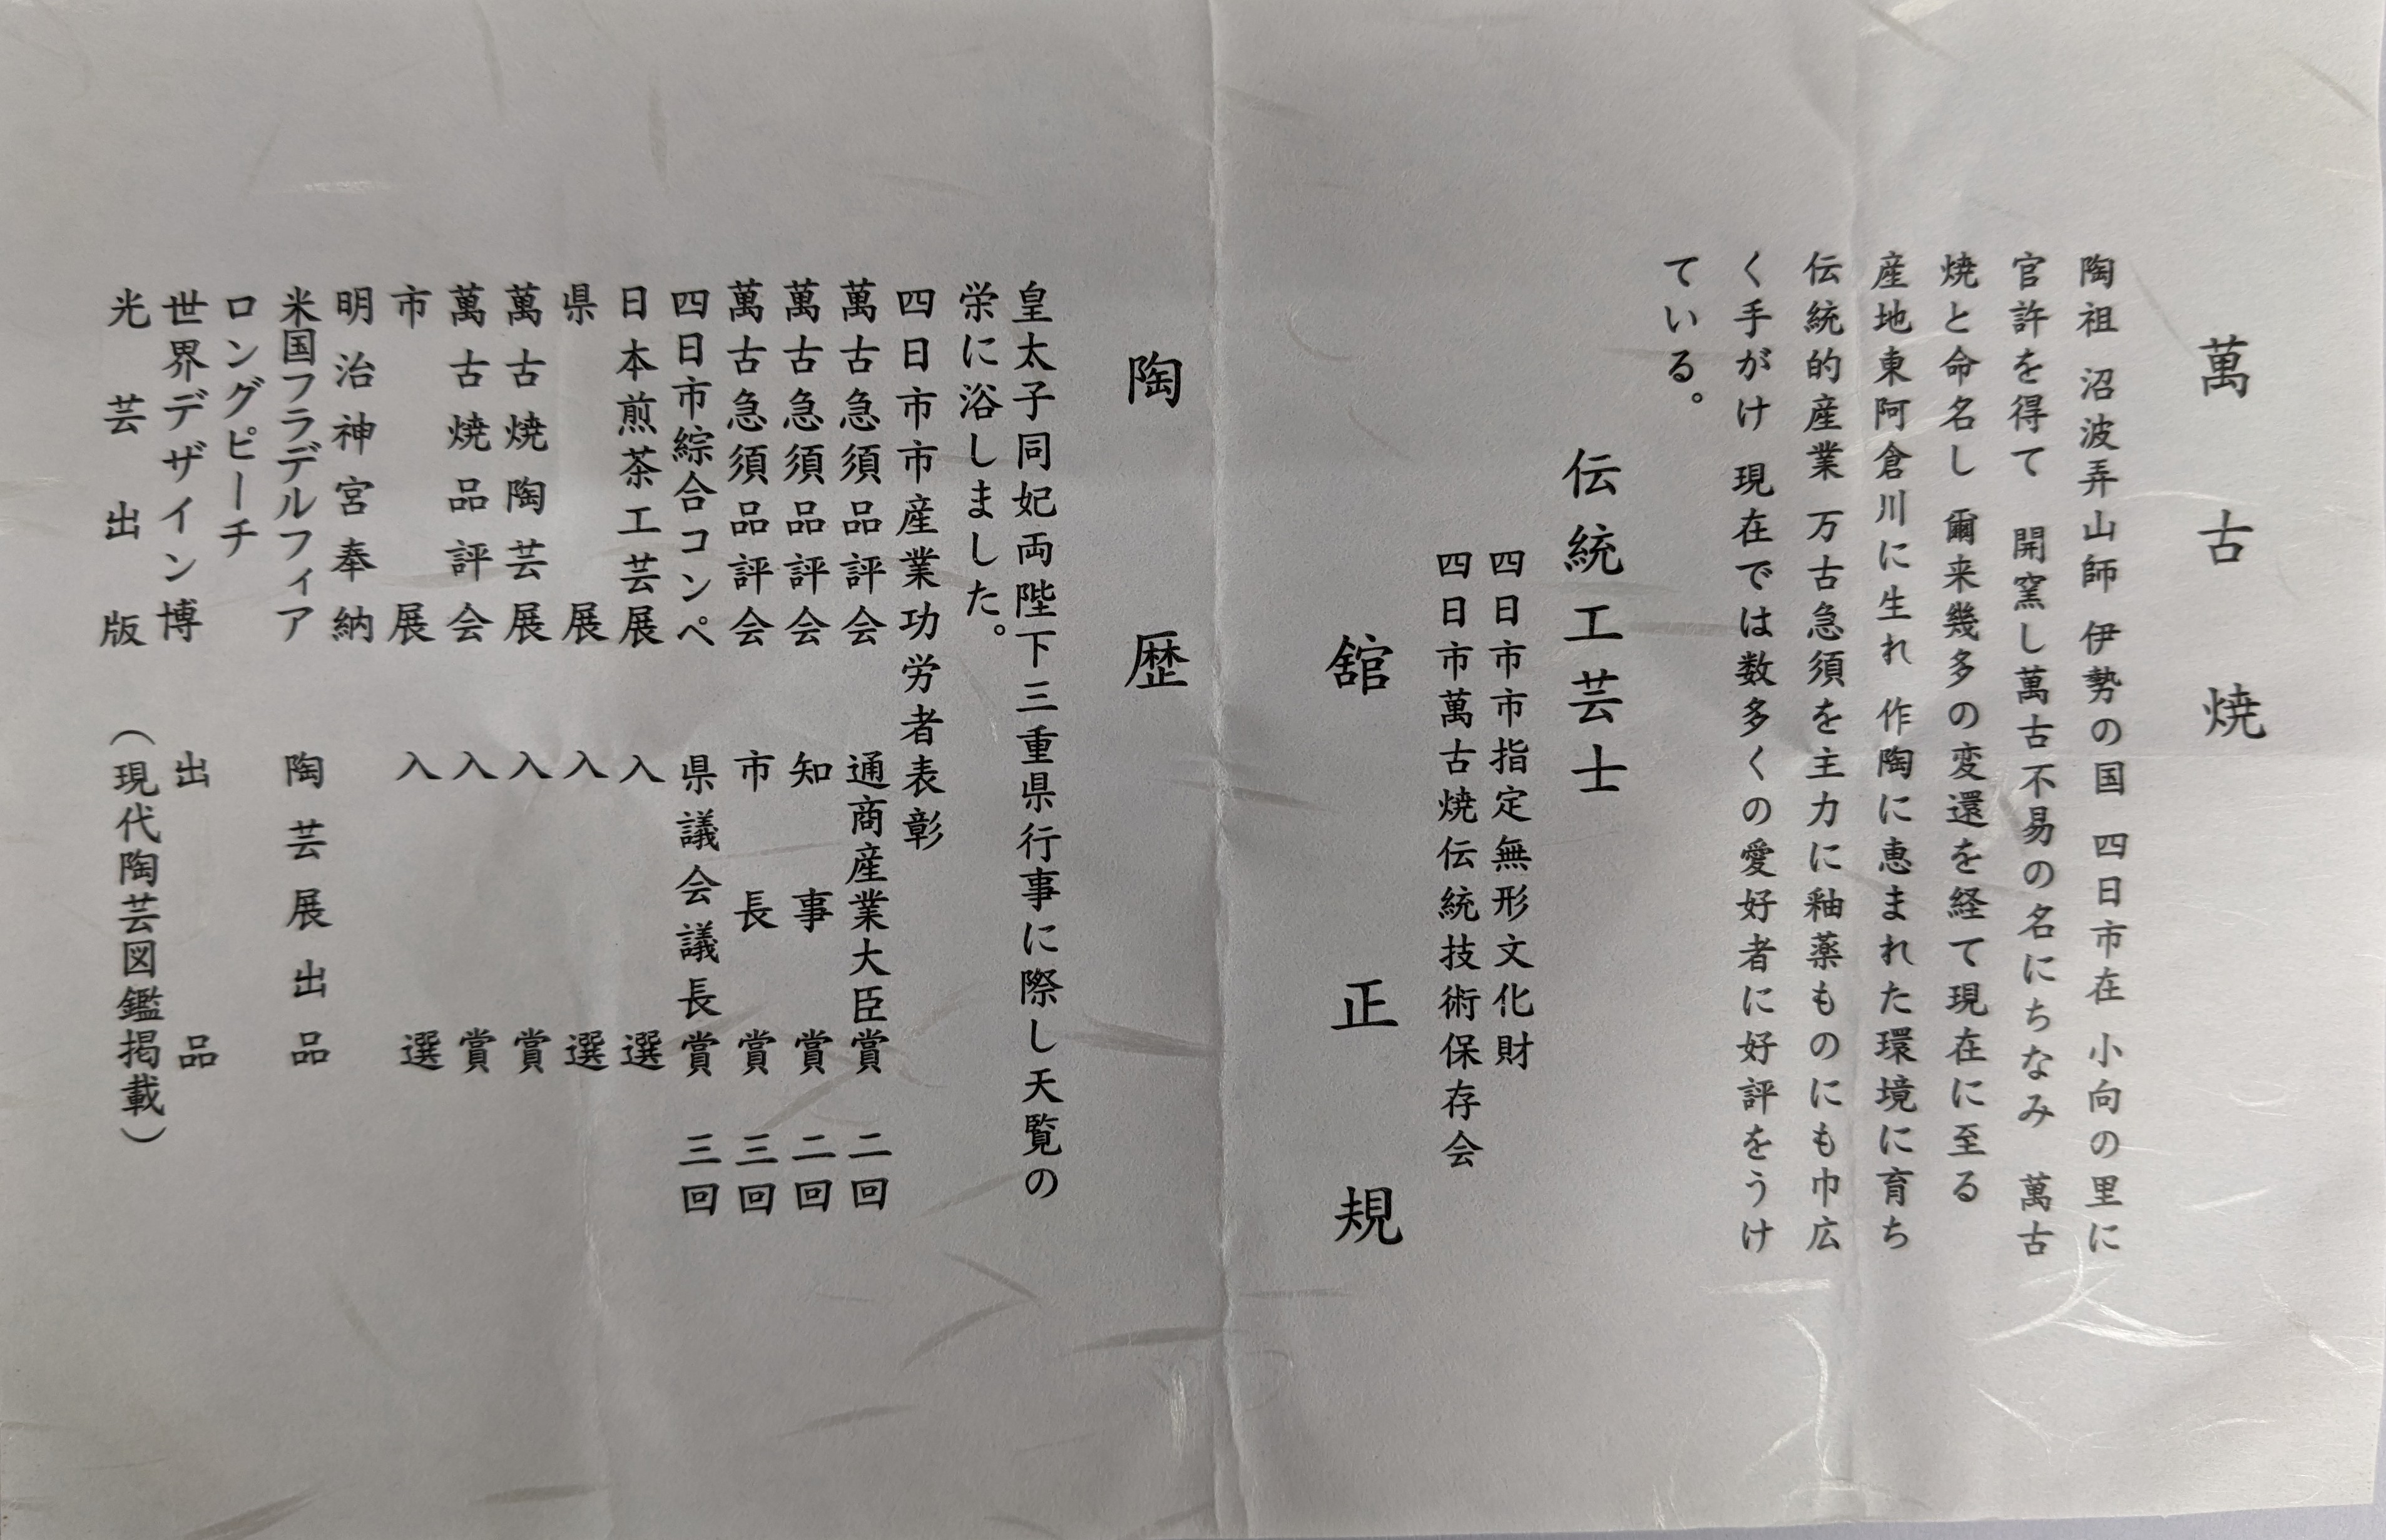 萬古焼
陶祖 沼波弄山師 伊勢の国 四日市在 小向の里に
官許を得て 開窯し萬古不易の名にちなみ 萬古
焼と命名し 爾来幾多の変還を経て現在に至る
産地東阿倉川に生れ 作陶に恵まれた環境に育ち
伝統的産業 万古急須を主力に釉薬ものにも巾広
く手がけ 現在では数多くの愛好者に好評をうけ
ている。
伝統工芸士
四日市市指定無形文化財
四日市萬古焼伝統技術保存会
舘 正規
陶歴
皇太子同妃両陛下三重県行事に際し天覧の
栄に浴しました。
四日市市産業功労者表彰
萬古急須品評会 通商産業大臣賞 二回
萬古急須品評会 知事賞 二回
萬古急須品評会 市長賞 三回
四日市綜合コンペ 県議会議長賞 三回
日本煎茶工芸展 入選
県展 入選
萬古焼陶芸展 入賞
萬古焼品評会 入賞
市展 入選
明治神宮奉納
米国フラデルフィア 陶芸展出品
ロングピーチ
世界デザイン博 出品
光芸出版 (現代陶芸図鑑掲載)